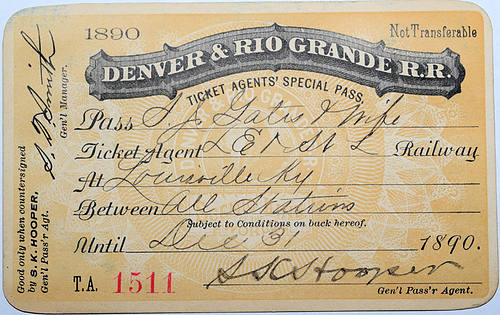 1890
Not Transferable
DENVER & RIO GRANDE R.R.
TICKET AGENTS' SPECIAL PASS,
Pass S. J. Gates & Wife
Ticket Agent L E & St L Railway
At Louisville Ky
Between All Stations
Subject to Conditions on back hereof.
Until Dec 31 1890.
T.A. 1511
S K Hooper
Gen'l Pass'r Agent.
Gen'l Manager.
Good only when countersigned
by S. K. HOOPER,
Gen'l Pass'r Agt.